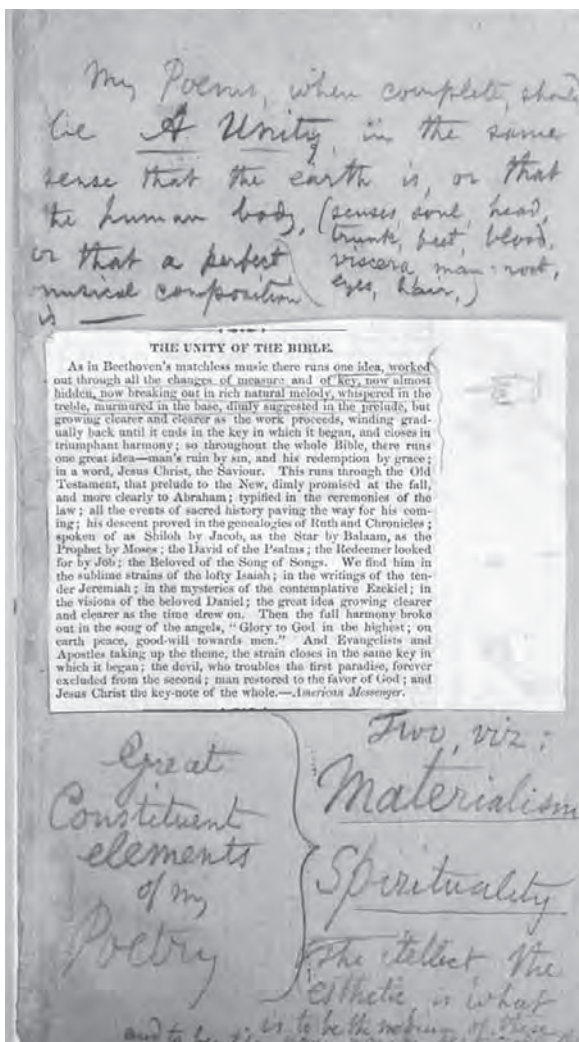 My Poems, when complete, should
be A Unity, in the same
sense that the earth is, or that
the human body, (senses, soul, head,
trunk, feet, blood,
viscera, man-root,
eyes, hair,)
or that a perfect
musical composition
is
THE UNITY OF THE BIBLE.
As in Beethoven's matchless music there runs one idea, worked
out through all the changes of measure and of key, now almost
hidden, now breaking out in rich natural melody, whispered in the
treble, murmured in the base, dimly suggested in the prelude, but
growing clearer and clearer as the work proceeds, winding grad-
ually back until it ends in the key in which it began, and closes in
triumphant harmony; so throughout the whole Bible, there runs
one great idea—man's ruin by sin, and his redemption by grace;
in a word, Jesus Christ, the Saviour. This runs through the Old
Testament, that prelude to the New, dimly promised at the fall,
and more clearly to Abraham; typified in the ceremonies of the
law; all the events of sacred history paving the way for his com-
ing; his descent proved in the genealogies of Ruth and Chronicles;
spoken of as Shiloh by Jacob, as the Star by Balaam, as the
Prophet by Moses; the David of the Psalms; the Redeemer looked
for by Job; the Beloved of the Song of Songs. We find him in
the sublime strains of the lofty Isaiah; in the writings of the ten-
der Jeremiah; in the mysteries of the contemplative Ezekiel; in
the visions of the beloved Daniel; the great idea growing clearer
and clearer as the time drew on. Then the full harmony broke
out in the song of the angels, "Glory to God in the highest; on
earth peace, good-will towards men." And Evangelists and
Apostles taking up the theme, the strain closes in the same key in
which it began; the devil, who troubles the first paradise, forever
excluded from the second; man restored to the favor of God; and
Jesus Christ the key-note of the whole.—American Messenger.
Great
Constituent
elements
of my
Poetry
Two, viz:
Materialism
Spirituality
The itellect, the
esthetic, is what
is to be the medium of these
and to be